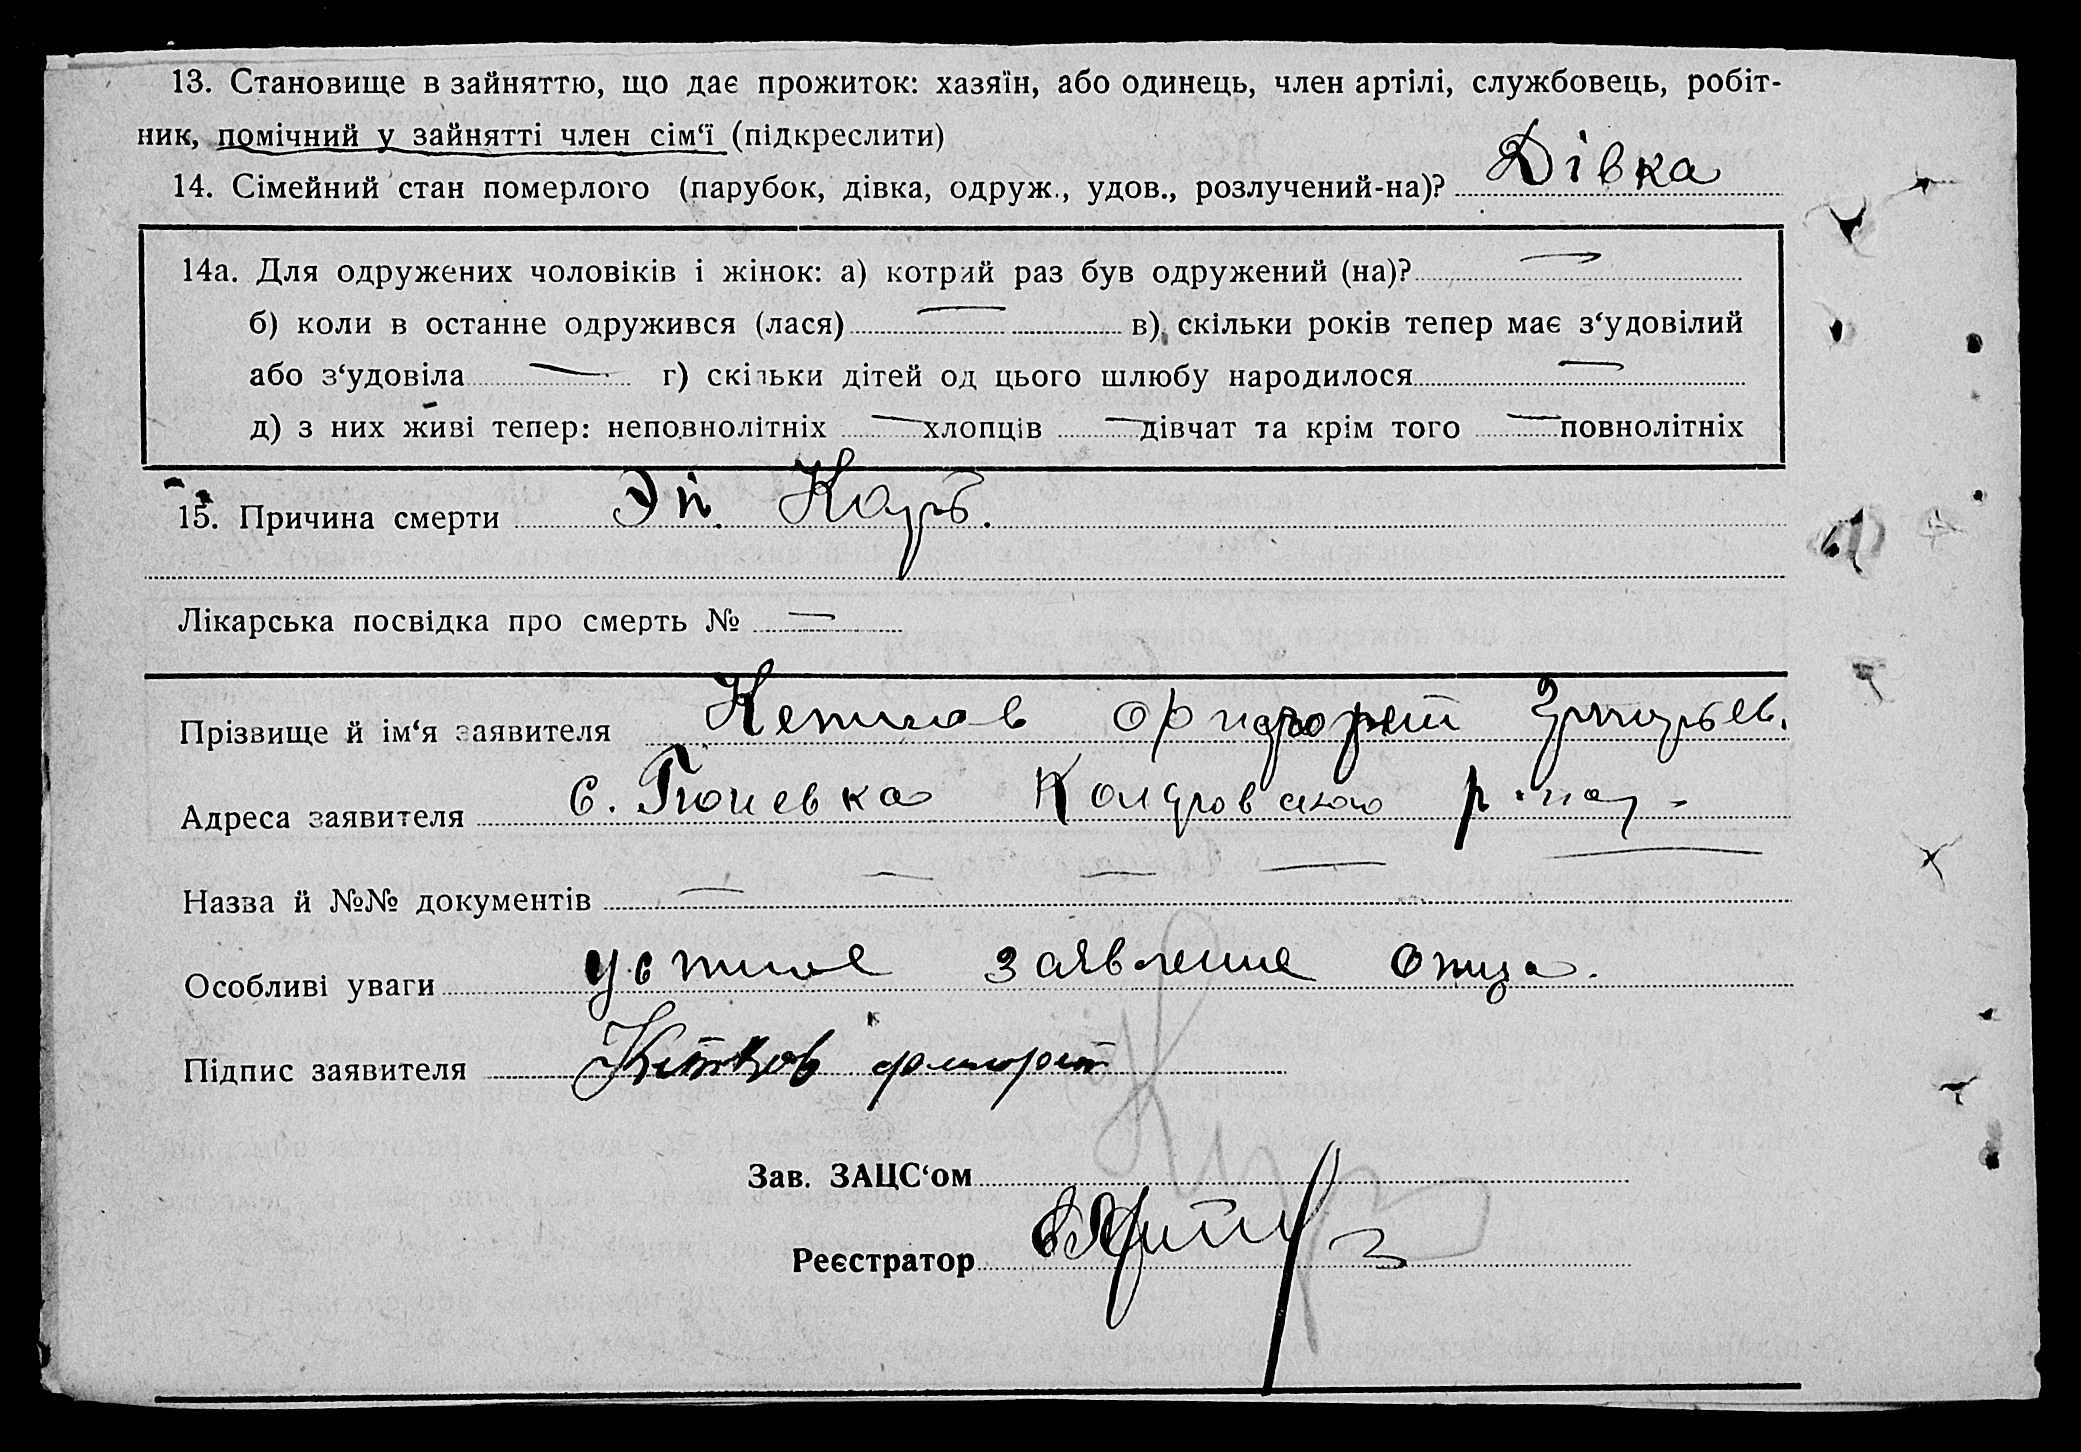 13. Становище в зайняттю, що дає прожиток: хазяїн, або одинець, член артілі, службовець, робіт-
ник, помічний у зайнятті член сім‘ї (підкреслити)
14. Сімейний стан померлого (парубок, дівка, одруж., удов., розлучений-на)? Дівка
14а. Для одружених чоловіків і жінок: а) котрий раз був одружений (на)? —
б) коли в останне одружився (лася) — в) скільки років тепер має з‘удовілий
або з‘удовіла — г) скільки дітей од цього шлюбу народилося —
д) з них живі тепер: неповнолітніх — хлопців — дівчат та крім того — повнолітніх
15. Причина смерти
Лікарська посвідка про смерть № —
Прізвище й ім‘я заявителя
Адреса заявителя с.
Назва й №№ документів — — — — —
Особливі уваги устное заявление отца.
Підпис заявителя
Зав. ЗАЦС‘ом
Реєстратор